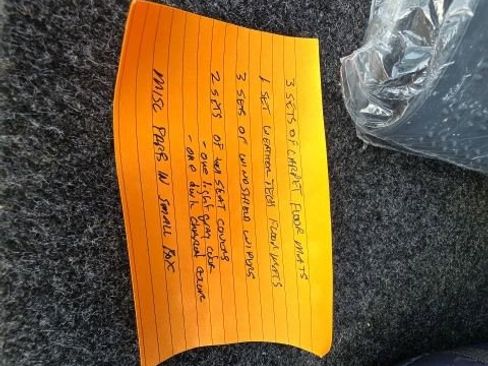 3 SETS OF CARPET FLOOR MATS
1 SET WEATHER TECH FLOOR MATS
3 SETS OF WINDSHIELD WIPERS
2 SETS OF SEAT COVERS
- one light gray color
- one dark charcoal color
MISC PARTS IN SMALL BOX